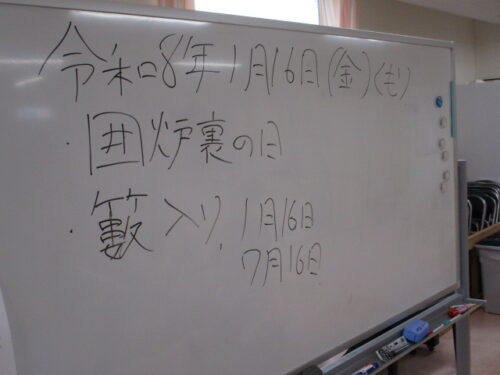 令和8年1月16日(金)くもり
・囲炉裏の日
・籔入り 1月16日
7月16日